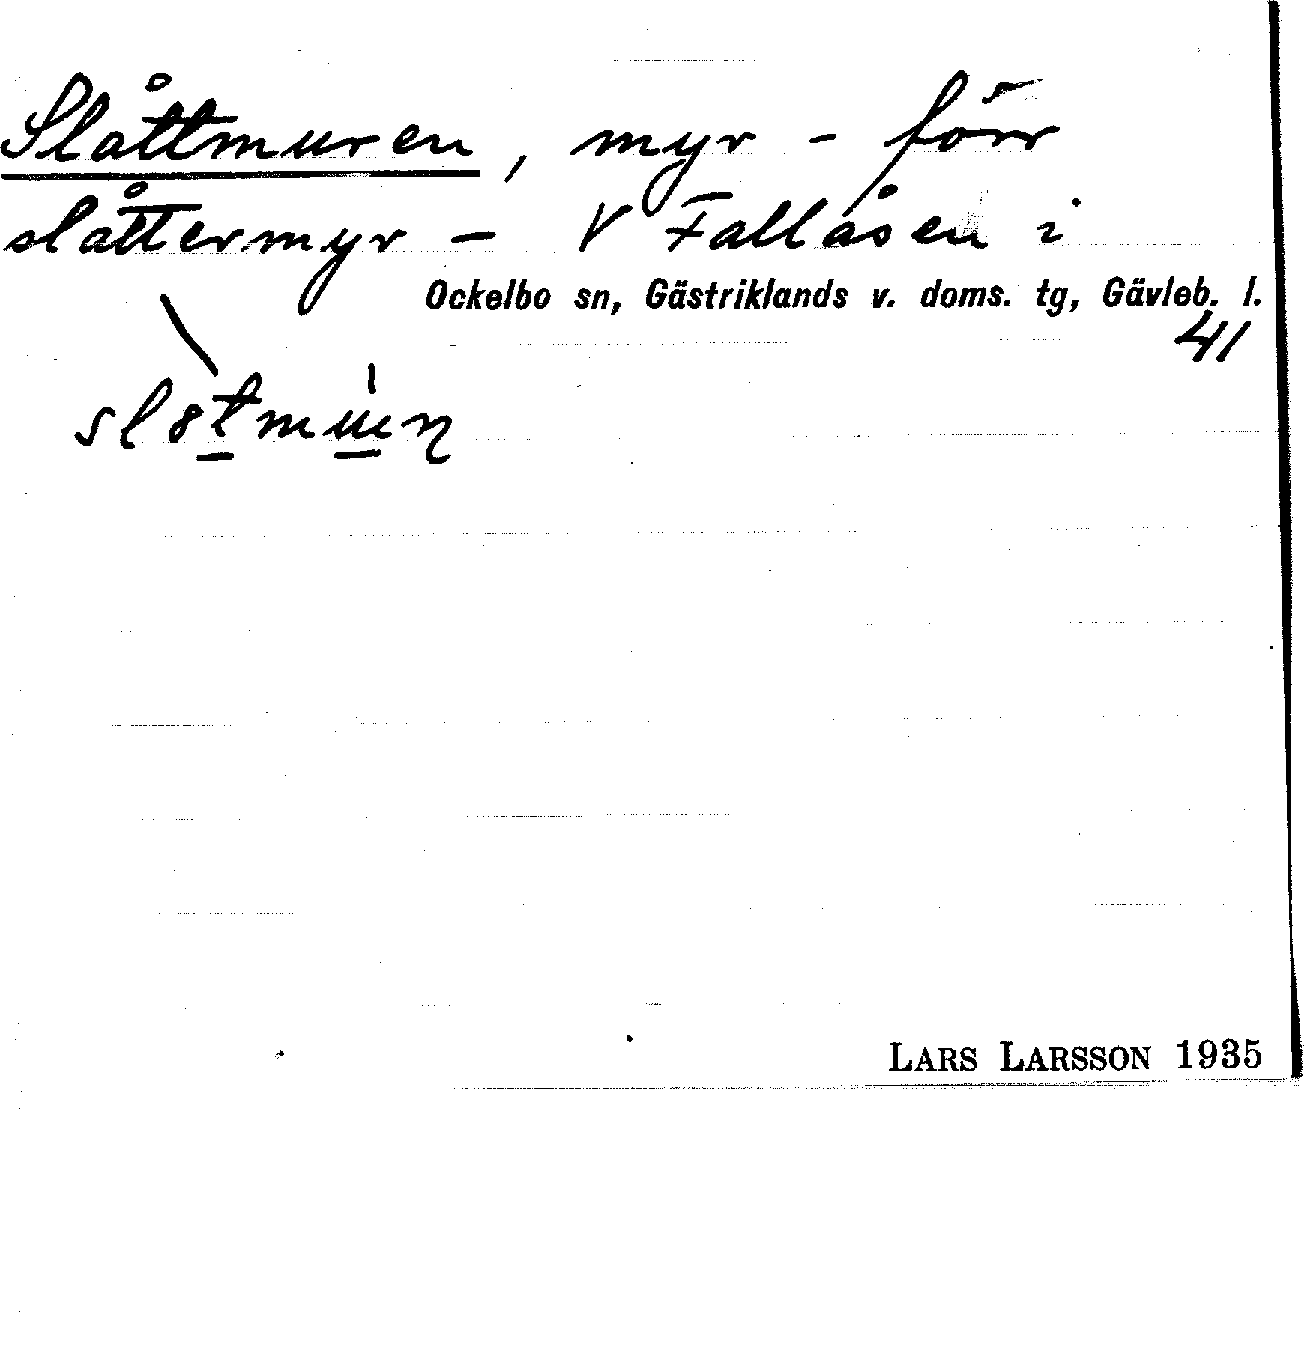 Slåttmuren, myr - förr
slåttermyr - V Fallåsen i
Ockelbo sn, Gästriklands v. doms. tg, Gävleb. l.
41
LARS LARSSON 1935